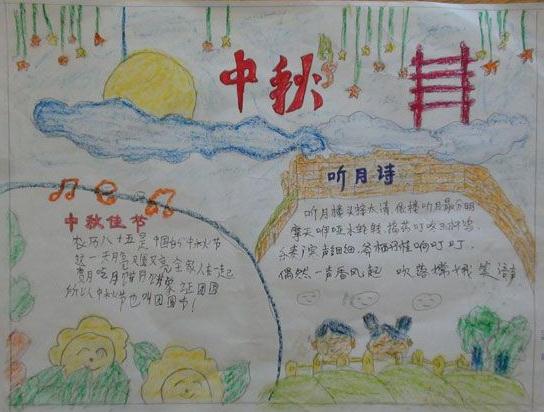 中秋
听月诗
听月楼头接太清 依楼听月最分明
摩天咿哑冰轮转，捣药叮咚玉杵鸣
乐奏广寒声细细，斧柯丹桂响叮叮
偶然一声香风起 吹落嫦娥笑语声
中秋佳节
农历八十五是中国的中秋节
这一天月亮又圆又亮，全家人在一起
赏月吃月饼月饼象征团圆
所以中秋节也叫团圆节！